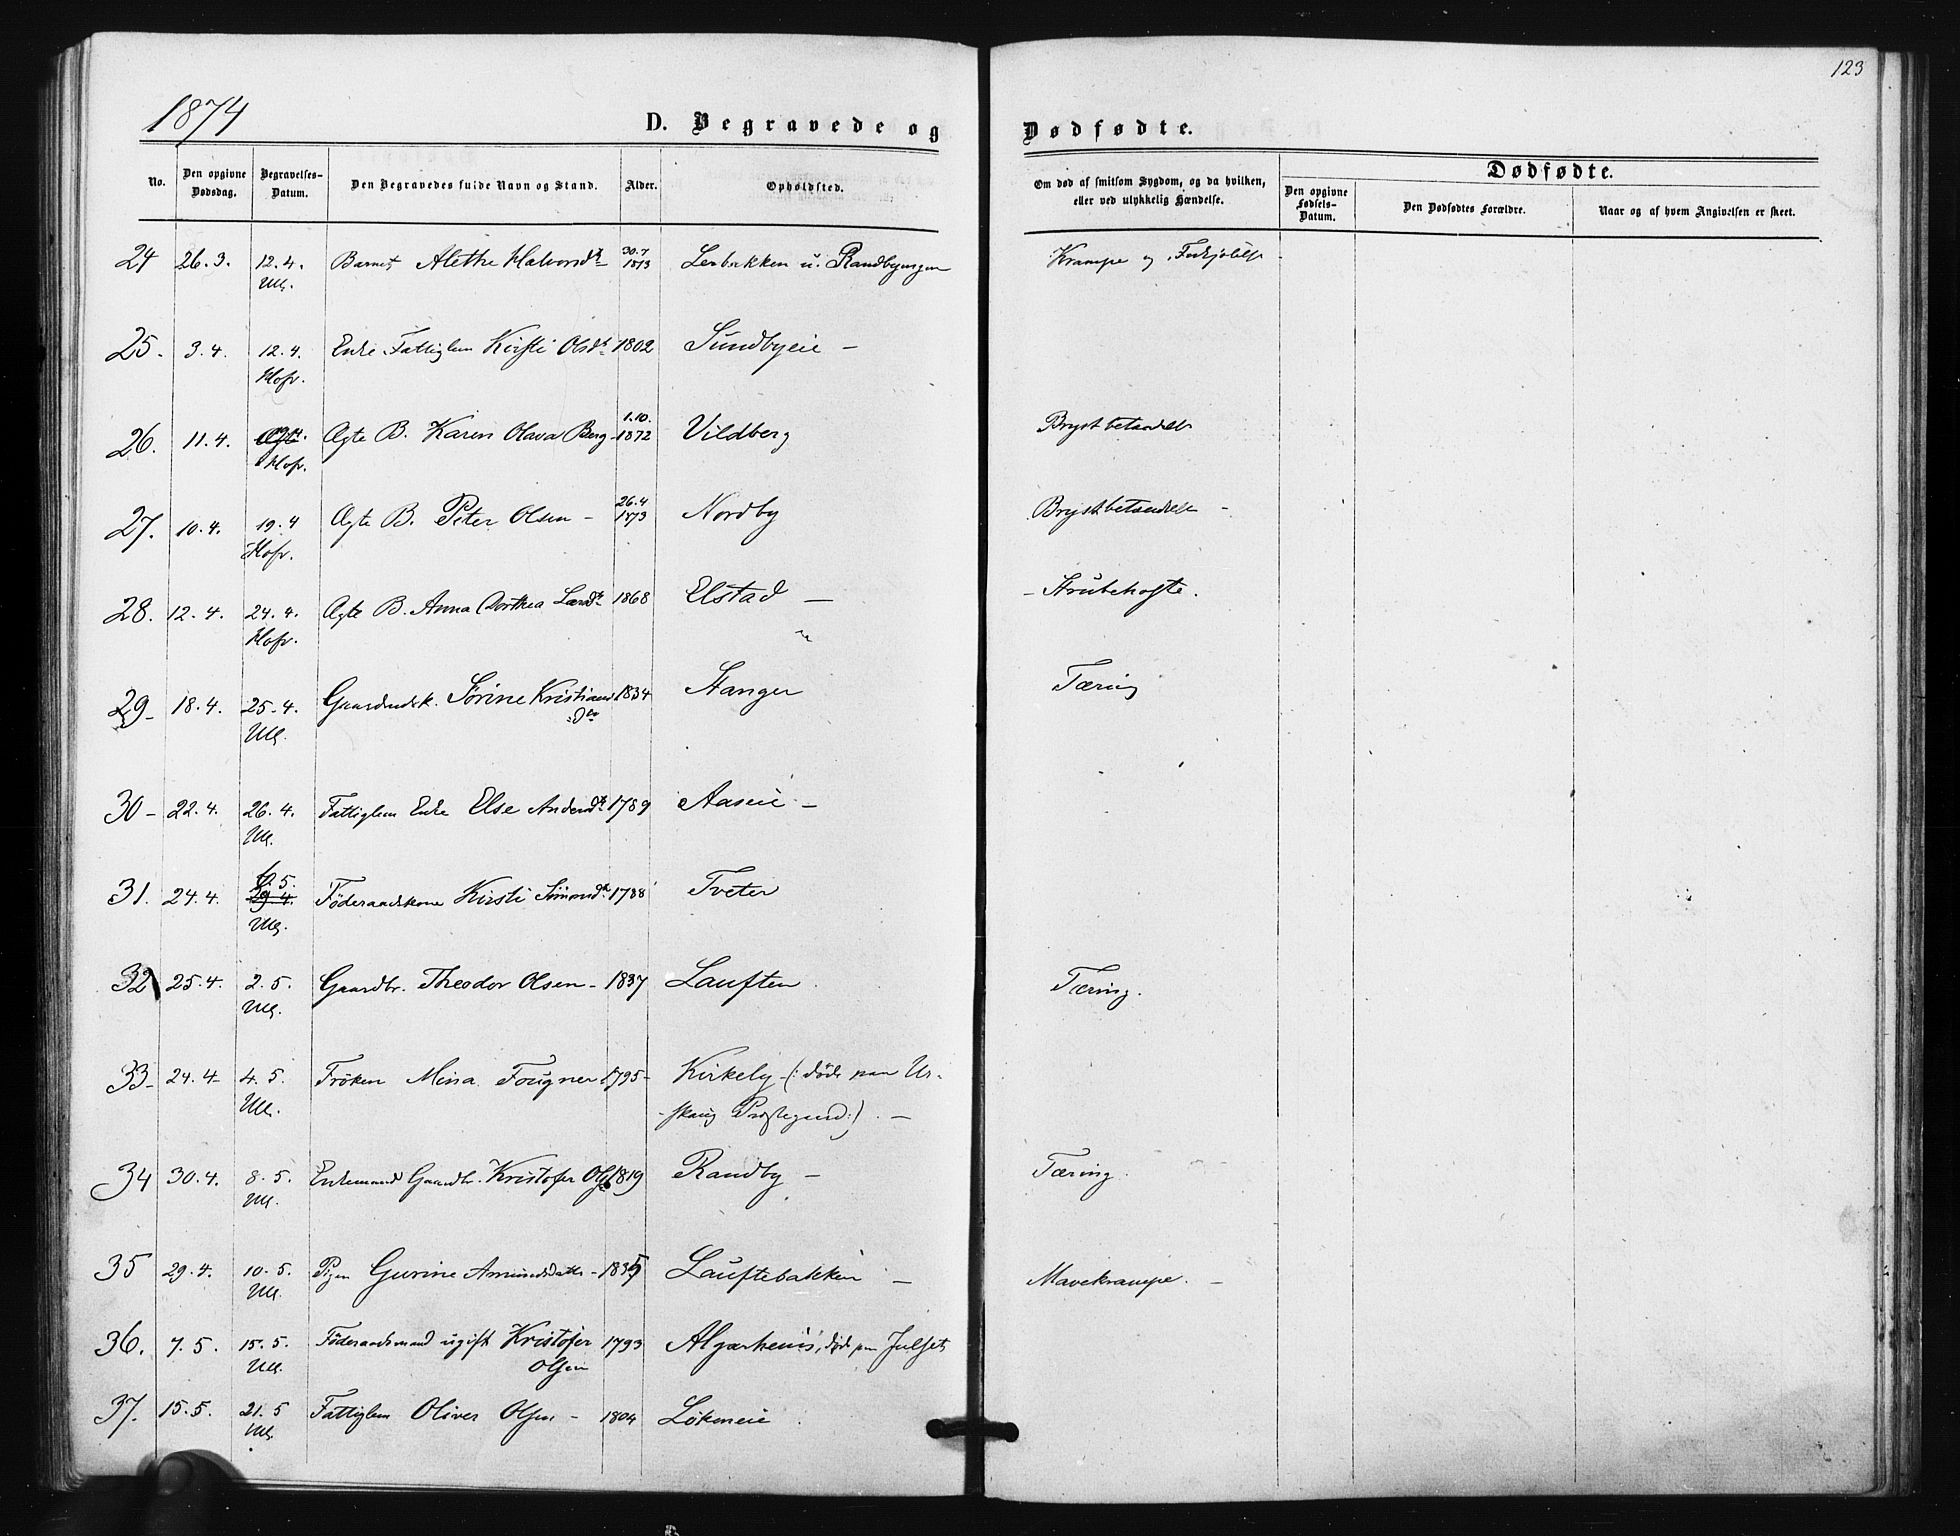 123
1874
D. Begravede og Dødfødte.
No. Den opgivne Dødsdag. Begravelses-Datum. Den Begravedes fulde Navn og Stand. Alder. Opholdsted. Om død af smitsom Sygdom, og da hvilken, eller ved ulykkelig Hændelse. Dødfødte. Den opgivne Fødsels-Datum. Den Dødfødtes Forældre. Naar og af hvem Angivelsen er skeet.
24 26.3. 12.4. Ull. Barnet Alethe Halvorsdt 30.7 1873 Lerbakken u. Randbyengen Krampe og
25. 3.4. 12.4. Hofv. Enke Fattiglem Kirsti Olsdt 1802 Sundbyeie –
26. 11.4. Hofv. Ægte B. Karen Olava Berg 1.10. 1872 Vildberg Brystbetændelse
27. 10.4. 19.4 Hofv. Ægte B. Peter Olsen – 26.4 1873 Nordby Brystbetændelse –
28. 12.4. 24.4. Hofv. Ægte B. Anna Dorthea Larsdt 1868 Elstad – Strubehoste.
29 – 18.4. 25.4. Ull. Gaardmdsk. Sørine Kristiansdtr 1834 Stanger Tæring
30 – 22.4. 26.4. Ull. Fattiglem Enke Else Andersdt 1789 Aaseie –
31. 24.4. 6.5. 29.4. Ull. Föderaadskone Kirsti Simensdt 1788 Tveter
32 25.4. 2.5. Ull. Gaardbr. Theodor Olsen – 1837 Lauften Tæring.
33 – 24.4 – 4.5. Ull. Fröken Mina Fougner 1795 – Kirkeby (: døde paa Ur-
skoug Præstegaard :) . –
34 30.4. 8.5. Ull. Enkemand Gaardbr. Kristofer Ols. 1819 Randby – Tæring.
35 29.4. 10.5. Ull. Pigen Gurine Amundsdatter – 1835 Lauftebakken – Mavekrampe. –
36. 7.5. 15.5. Ull. Föderaadsmand ugift Kristofer Olsen 1793 Algarheim, død paa Julset
37. 15.5. 21.5 Ull. Fattiglem Oliver Olsen – 1804 Lökeneie